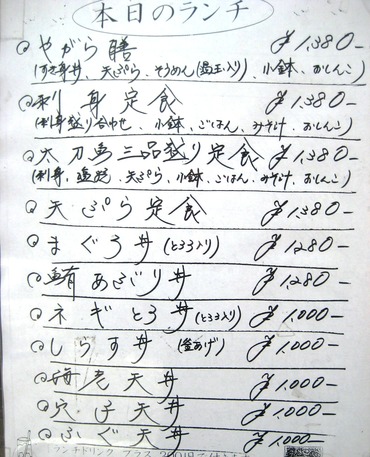 本日のランチ
やがら膳 ¥1,380-
(すき身丼、天ぷら、そうめん(温玉入り)、小鉢、おしんこ)
刺身定食 ¥1,380-
(刺身盛り合わせ、小鉢、ごはん、みそ汁、おしんこ)
太刀魚三品盛り定食 ¥1,380-
(刺身、塩焼、天ぷら、小鉢、ごはん、みそ汁、おしんこ)
天ぷら定食 ¥1,380-
まぐろ丼(とろろ入り) ¥1,280-
鮪あぶり丼 ¥1,280-
ネギとろ丼(とろろ入り) ¥1,000-
しらす丼(釜あげ) ¥1,000-
海老天丼 ¥1,000-
穴子天丼 ¥1,000-
ふぐ天丼 ¥1,000-
ランチドリンク プラス200円